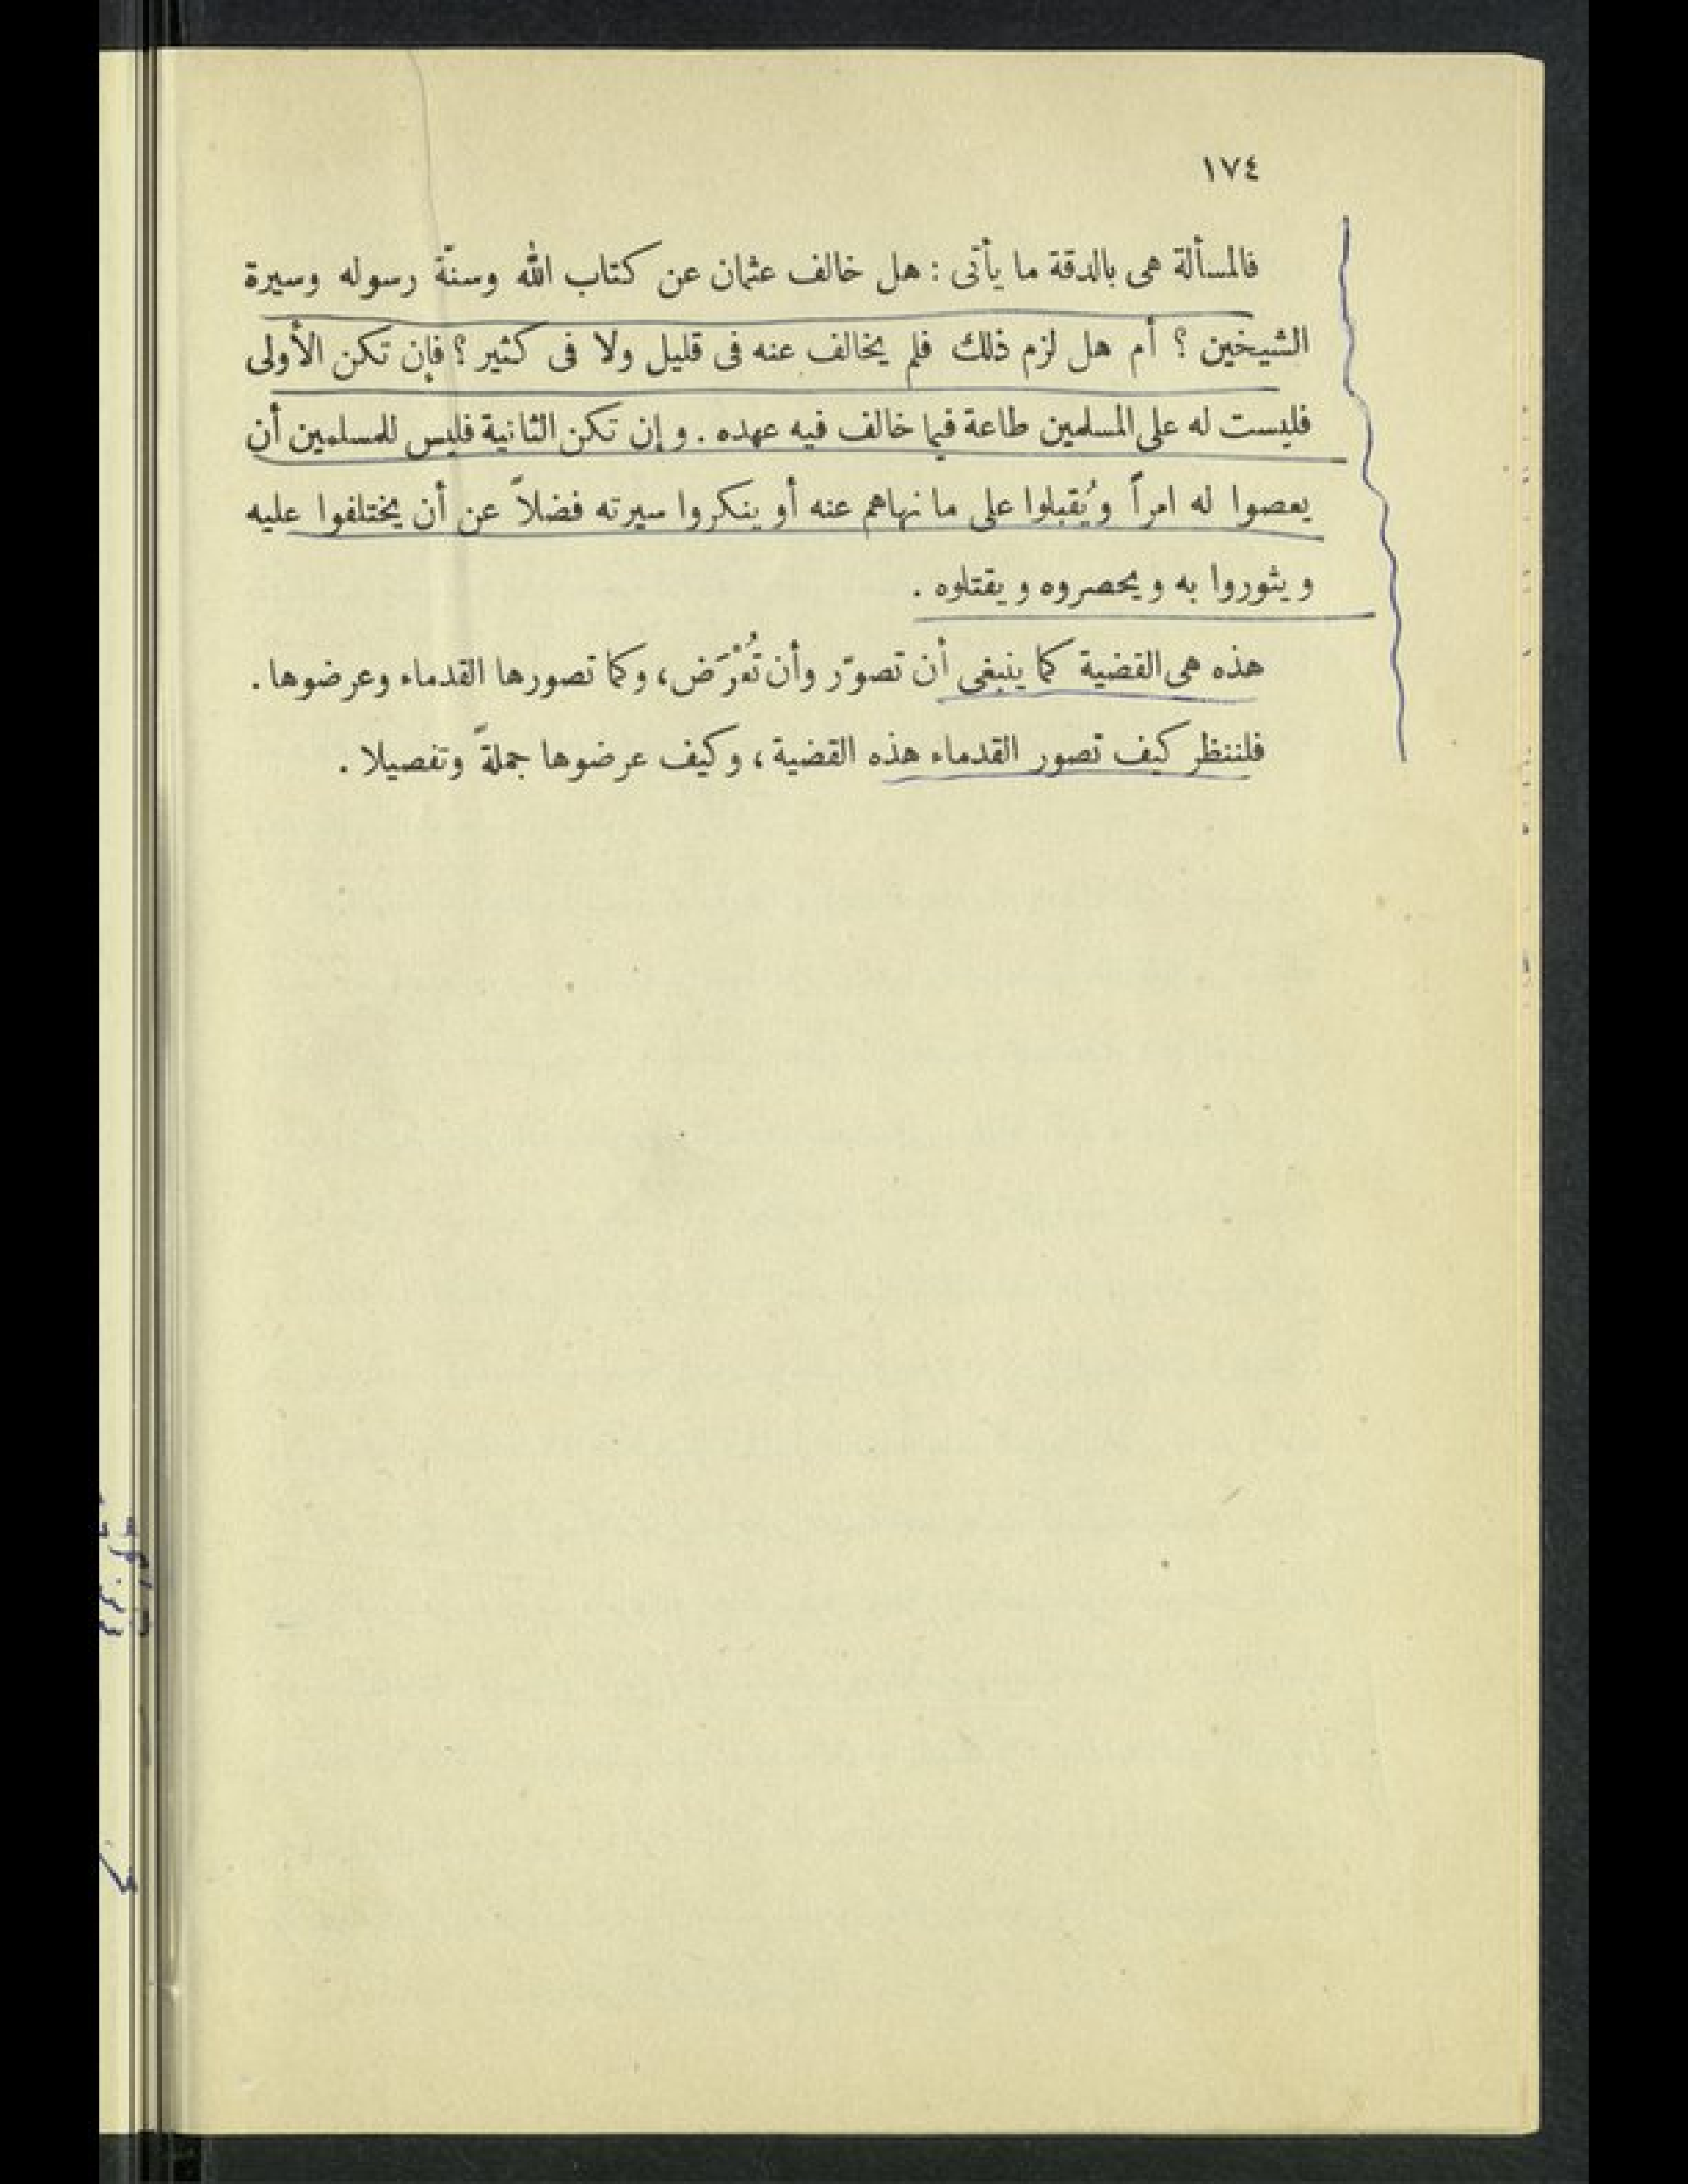 ١٧٤
فالمسألة هى بالدقة ما يأتى : هل خالف عثمان عن كتاب الله وسنّة رسوله وسيرة
الشيخين ؟ أم هل لزم ذلك فلم يخالف عنه فى قليل ولا فى كثير ؟ فإن تكن الأولى
فليست له على المسلمين طاعة فيما خالف فيه عهده . وإن تكن الثانية فليس للمسلمين أن
يعصوا له امراً ويُقبلوا على ما نهاهم عنه أو ينكروا سيرته فضلاً عن أن يختلفوا عليه
ويثوروا به ويحصروه ويقتلوه .
هذه هى القضية كما ينبغى أن تصوّر وأن تُعْرَض، وكما تصورها القدماء وعرضوها .
فلننظر كيف تصور القدماء هذه القضية ، وكيف عرضوها جملةً وتفصيلا .